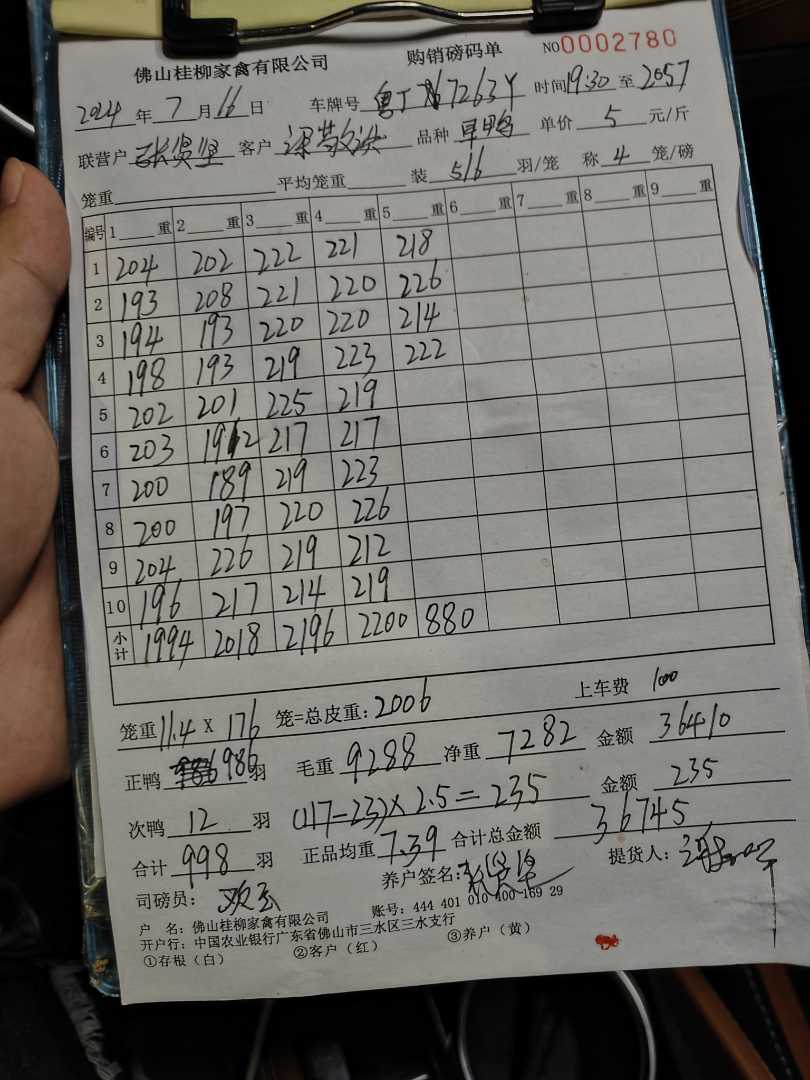 佛山桂柳家禽有限公司 购销磅码单 NO0002780
2024年7月16日 车牌号 粤J 7263Y 时间19:30至2057
联营户 张贤坚 客户 品种 旱鸭 单价 5 元/斤
笼重 平均笼重 装 5/6 羽/笼 称 4 笼/磅
编号 1 重 2 重 3 重 4 重 5 重 6 重 7 重 8 重 9 重
1 204 202 222 221 218
2 193 208 221 220 226
3 194 193 220 220 214
4 198 193 219 223 222
5 202 201 225 219
6 203 192 217 217
7 200 189 219 223
8 200 197 220 226
9 204 226 219 212
10 196 217 214 219
小计 1994 2018 2196 2200 880
笼重 11.4 X 176 笼=总皮重: 2006 上车费 100
正鸭 986 羽 毛重 9288 净重 7282 金额 36410
次鸭 12 羽 (117-23)×2.5=235 金额 235
合计 998 羽 正品均重 7.39 合计总金额 36745
司磅员: 养户签名: 提货人:
户 名: 佛山桂柳家禽有限公司 账号: 444 401 010 400 169 29
开户行: 中国农业银行广东省佛山市三水区三水支行
①存根（白） ②客户（红） ③养户（黄）